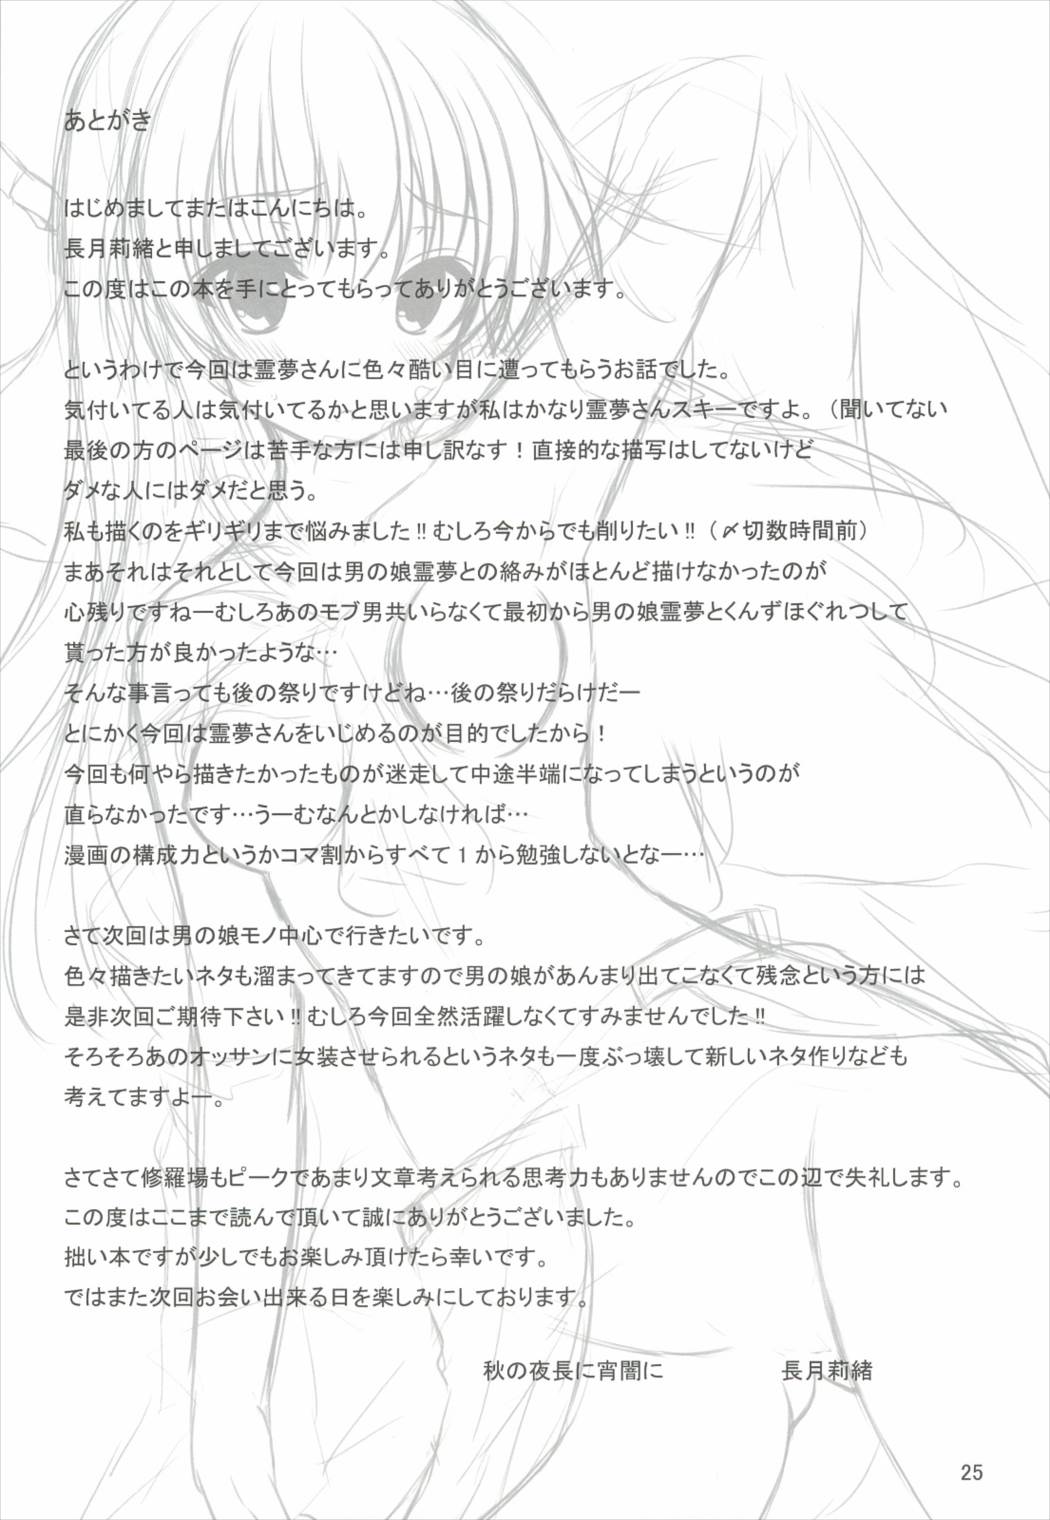 あとがき
はじめましてまたはこんにちは。
長月莉緒と申しましてございます。
この度はこの本を手にとってもらってありがとうございます。
というわけで今回は霊夢さんに色々酷い目に遭ってもらうお話でした。
気付いてる人は気付いてるかと思いますが私はかなり霊夢さんスキーですよ。（聞いてない
最後の方のページは苦手な方には申し訳なす！直接的な描写はしてないけど
ダメな人にはダメだと思う。
私も描くのをギリギリまで悩みました!!むしろ今からでも削りたい!!（〆切数時間前）
まあそれはそれとして今回は男の娘霊夢との絡みがほとんど描けなかったのが
心残りですねーむしろあのモブ男共いらなくて最初から男の娘霊夢とくんずほぐれつして
貰った方が良かったような…
そんな事言っても後の祭りですけどね…後の祭りだらけだー
とにかく今回は霊夢さんをいじめるのが目的でしたから！
今回も何やら描きたかったものが迷走して中途半端になってしまうというのが
直らなかったです…うーむなんとかしなければ…
漫画の構成力というかコマ割からすべて１から勉強しないとなー…
さて次回は男の娘モノ中心で行きたいです。
色々描きたいネタも溜まってきてますので男の娘があんまり出てこなくて残念という方には
是非次回ご期待下さい!!むしろ今回全然活躍しなくてすみませんでした!!
そろそろあのオッサンに女装させられるというネタも一度ぶっ壊して新しいネタ作りなども
考えてますよー。
さてさて修羅場もピークであまり文章考えられる思考力もありませんのでこの辺で失礼します。
この度はここまで読んで頂いて誠にありがとうございました。
拙い本ですが少しでもお楽しみ頂けたら幸いです。
ではまた次回お会い出来る日を楽しみにしております。
秋の夜長に宵闇に　　　　　長月莉緒
25